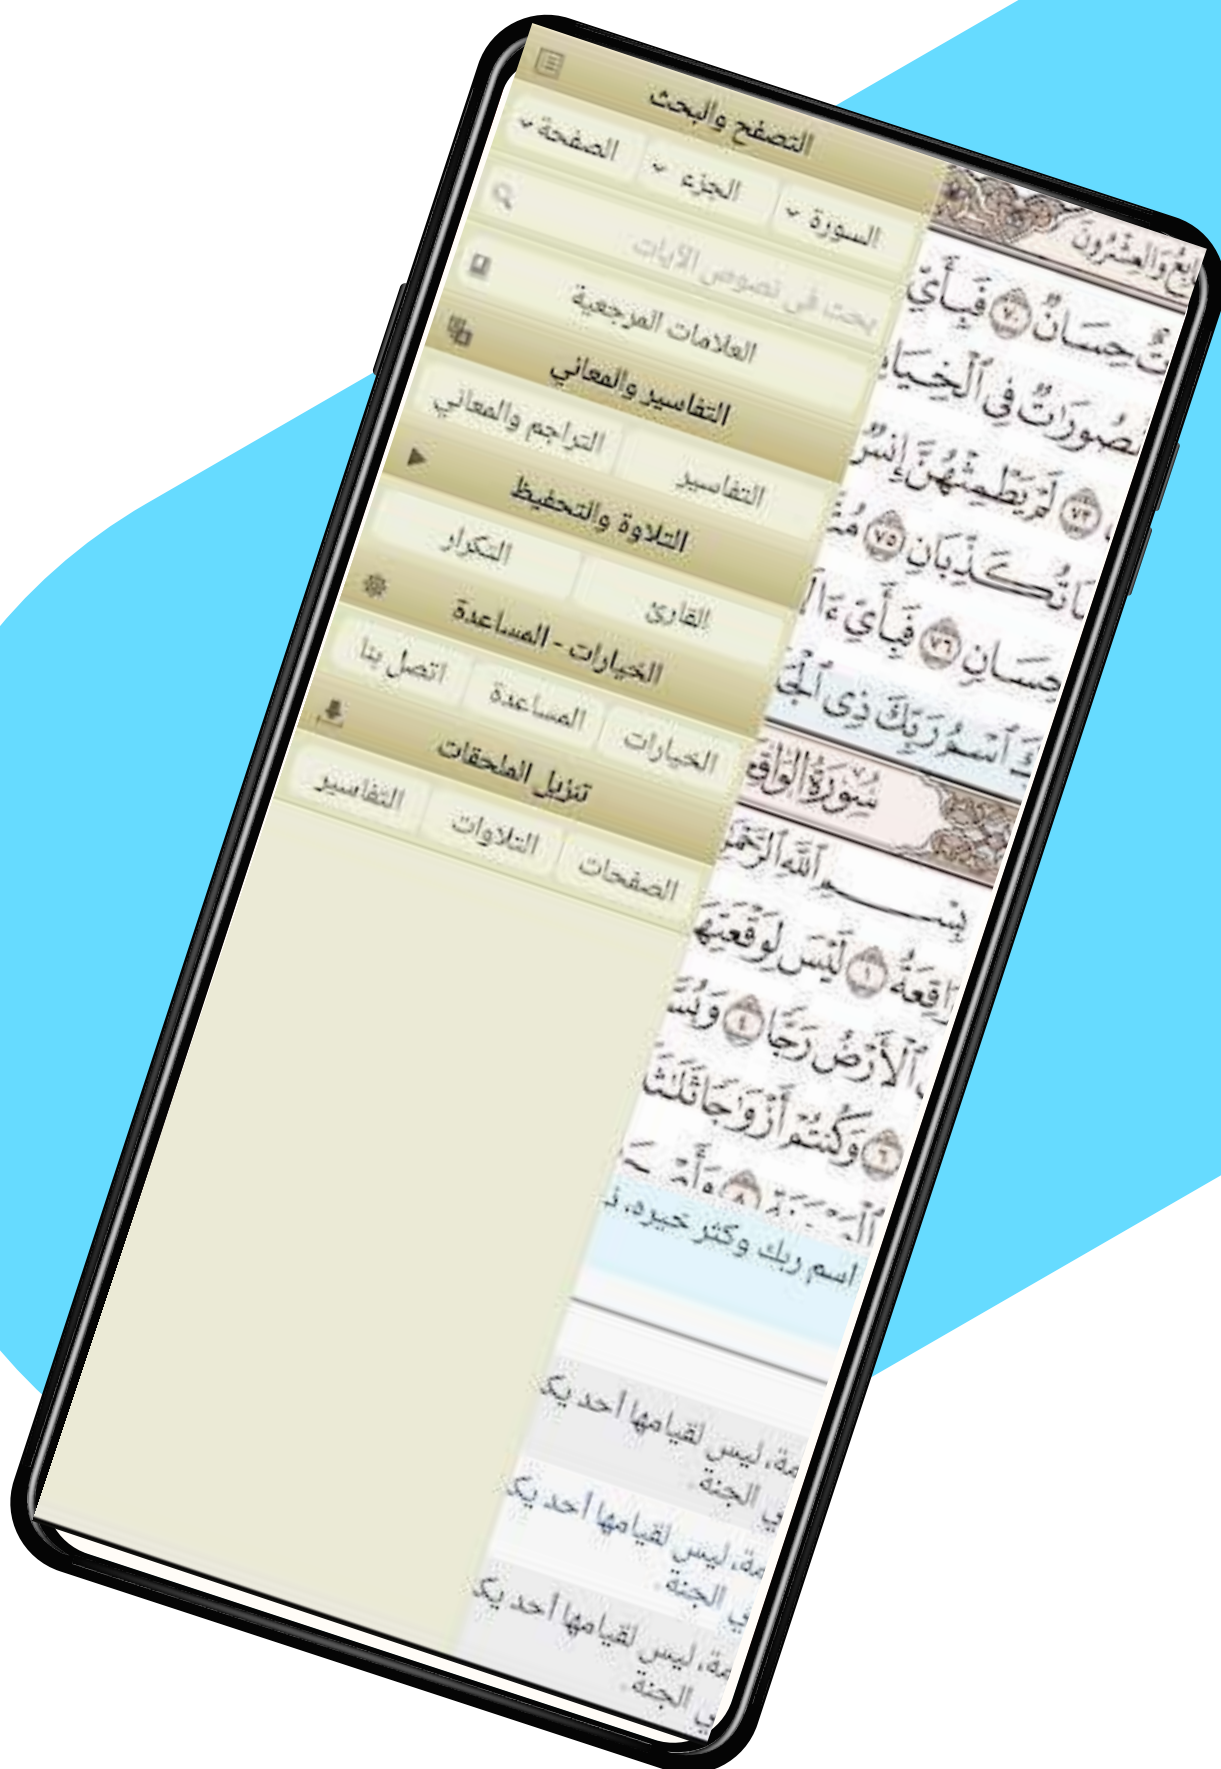 التصفح والبحث
السورة
الجزء
الصفحة
بحث في نصوص الآيات
العلامات المرجعية
التفاسير والمعاني
التفاسير
التراجم والمعاني
التلاوة والتحفيظ
القارئ
التكرار
الخيارات - المساعدة
الخيارات
المساعدة
اتصل بنا
تنزيل الملحقات
الصفحات
التلاوات
التفاسير
وَالْعِشْرُونَ
حِسَانٌ ٧٠ فَبِأَيِّ
فِي ٱلْخِيَا
٧٣ لَمْ يَطْمِثْهُنَّ إِنسٌ
تُكَذِّبَانِ ٧٥
حِسَانٍ ٧٦ فَبِأَيِّ ءَالَ
ٱسْمُ رَبِّكَ ذِى ٱلْجَ
سُورَةُ الوَاقِعَ
بِسْمِ ٱللَّهِ ٱلرَّحْمَ
اقِعَةُ ١ لَيْسَ لِوَقْعَتِهَ
ٱلْأَرْضُ رَجًّا ٤ وَبُسَّ
٦ وَكُنتُمْ أَزْوَٰجًا ثَلَٰثَ
٨
اسم ربك وكثر خيره،
مة، ليس لقيامها أحد يك
ي الجنة.
مة، ليس لقيامها أحد يك
ي الجنة.
مة، ليس لقيامها أحد يك
ي الجنة.